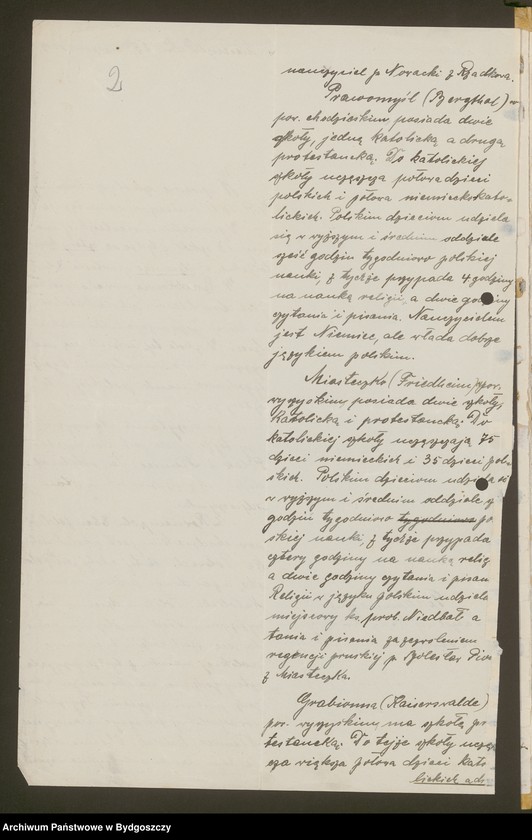 2
nauczyciel p. Noracki z Radkowa.
Prawomyśl (Bergthal) w
pow. chodzieskim, posiada dwie
szkoły, jedną katolicką a drugą
protestancką. Do katolickiej
szkoły uczęszcza połowa dzieci
polskich i połowa niemiecko-kato-
lickich. Polskim dzieciom udziela
się w wyższym i średnim oddziale
sześć godzin tygodniowo polskiej
nauki, z tychże przypada 4 godziny
na naukę religii, a dwie godziny
czytania i pisania. Nauczycielem
jest Niemiec, ale włada dobrze
językiem polskim.
Miasteczko (Friedheim) pow.
wyrzyskim, posiada dwie szkoły,
katolicką i protestancką. Do
katolickiej szkoły uczęszczają 75
dzieci niemieckich i 35 dzieci pol-
skich. Polskim dzieciom udziela si
w wyższym i średnim oddziale
godzin tygodniowo tygodniowo po
skiej nauki z tychże przypada
cztery godziny na naukę relig
a dwie godziny czytania i pisan
Religii w języku polskim udziela
miejscowy ks. prob. Niedbał a
tania i pisania za zezwoleniem
regencji pruskiej p. Bolesław
z Miasteczka.
Grabionna (Kaiserswalde)
pow. wyrzyskim, ma szkołę po
testancką. Do tejże szkoły uczęs
cza większa połowa dzieci kato
lickich
Archiwum Państwowe w Bydgoszczy